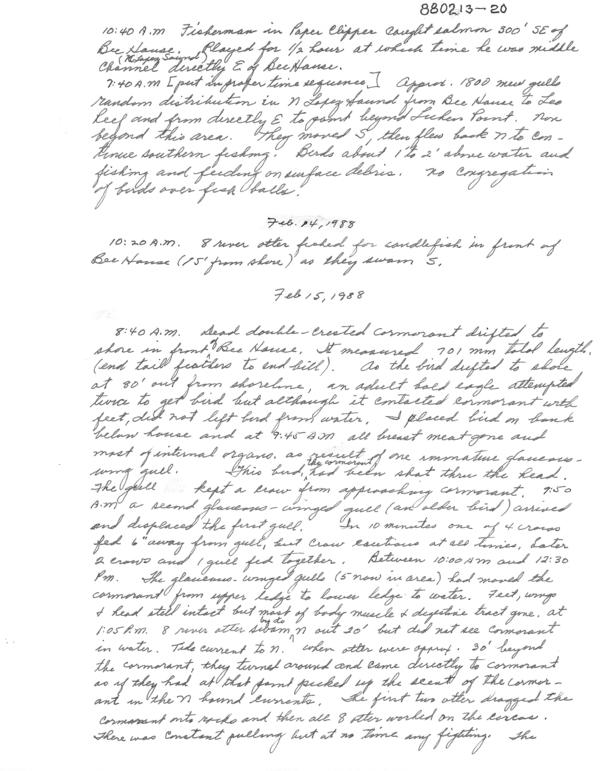 880213-20
10:40 A.M Fisherman in Paper Clipper caught salmon 300' SE of
Bee House. Played for 1/2 hour at which time he was middle
Channel (N Lopez Sound) directly E of Bee House.
7:40 A.M [put in proper time sequence] Approx. 1800 mew gulls
random distribution in N Lopez Sound from Bee House to Leo
Reef and from directly E to point beyond Point. Non
beyond this area. They moved S, then flew back N to con-
tinue southern fishing. Birds about 1 to 2' above water and
fishing and feeding on surface debris. No congregation
of birds over fish balls.
Feb. 14, 1988
10:20 A.M. 8 river otter fished for candlefish in front of
Bee House (15' from shore) as they swam S.
Feb 15, 1988
8:40 A.M. Dead double-crested cormorant drifted to
shore in front of Bee House. It measured 701 mm total length.
(end tail feathers to end bill). As the bird drifted to shore
at 80' out from shoreline, an adult bald eagle attempted
twice to get bird but although it contacted cormorant with
feet, did not left bird from water. I placed bird on bank
below house and at 9:45 A.M all breast meat gone and
most of internal organs. as result of one immature glaucous-
wing gull. This bird, the cormorant, had been shot thru the head.
The gull kept a crow from approaching cormorant. 9:50
A.M a second glaucous-winged gull (an older bird) arrived
and displaced the first gull. In 10 minutes one of 4 crows
fed 6" away from gull, but crow cautious at all times, later
2 crows and 1 gull fed together. Between 10:00 AM and 12:30
P.M. The glaucous-winged gulls (5 now in area) had moved the
cormorant from upper ledge to lower ledge to water. Feet, wings
& head still intact but most of body muscle & digestive tract gone. at
1:05 P.M. 8 river otter swam by to N out 20' but did not see cormorant
in water. Tide current to N. when otter were approx. 30' beyond
the cormorant, they turned around and came directly to cormorant
as if they had at that point picked up the scent of the cormor-
ant in the N bound currents. The first two otter dragged the
cormorant onto rocks and then all 8 otter worked on the carcas.
There was constant pulling but at no time any fighting. The